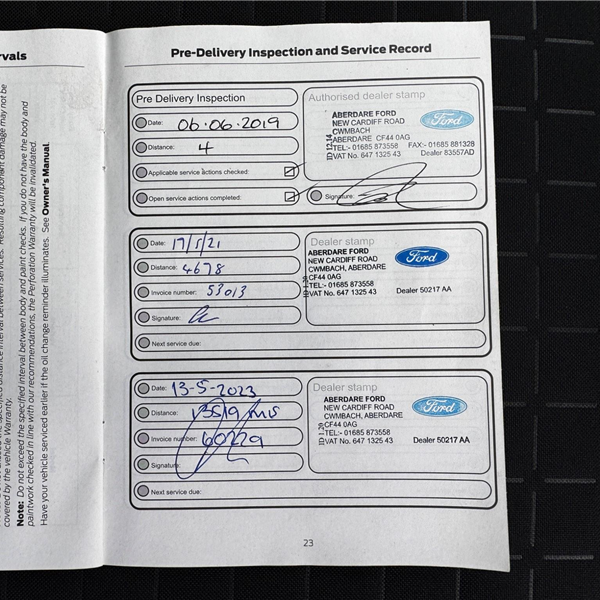 rvals
covered by the vehicle Warranty.
Note: Do not exceed the specified interval between body and paint checks. If you do not have the body and
paintwork checked in line with our recommendations, the Perforation Warranty will be invalidated.
Have your vehicle serviced earlier if the oil change reminder illuminates. See Owner's Manual.
Pre-Delivery Inspection and Service Record
Pre Delivery Inspection
Date: 06.06.2019
Distance: 4
Applicable service actions checked:
Open service actions completed:
Authorised dealer stamp
ABERDARE FORD
NEW CARDIFF ROAD
CWMBACH
ABERDARE CF44 0AG
TEL:- 01685 873558 FAX:- 01685 881328
VAT No. 647 1325 43 Dealer 83557AD
Ford
Signature:
Date: 17/5/21
Distance: 4678
Invoice number: 53013
Signature:
Next service due:
Dealer stamp
ABERDARE FORD
NEW CARDIFF ROAD
CWMBACH, ABERDARE
CF44 0AG
TEL:- 01685 873558
VAT No. 647 1325 43 Dealer 50217 AA
Ford
Date: 13-5-2023
Distance:
Invoice number: 60229
Signature:
Next service due:
Dealer stamp
ABERDARE FORD
NEW CARDIFF ROAD
CWMBACH, ABERDARE
CF44 0AG
TEL:- 01685 873558
VAT No. 647 1325 43 Dealer 50217 AA
Ford
23